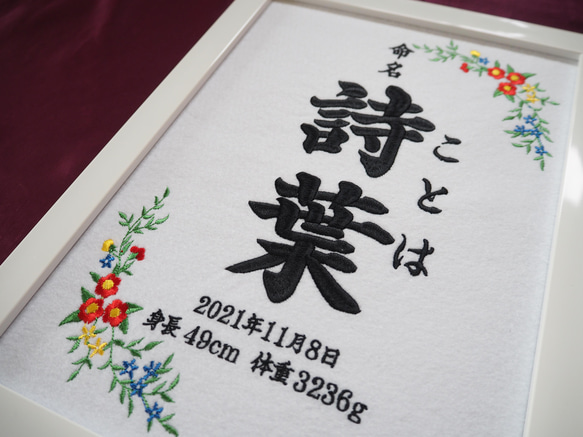 命名
詩葉
ことは
2021年11月8日
身長49cm 体重3236g